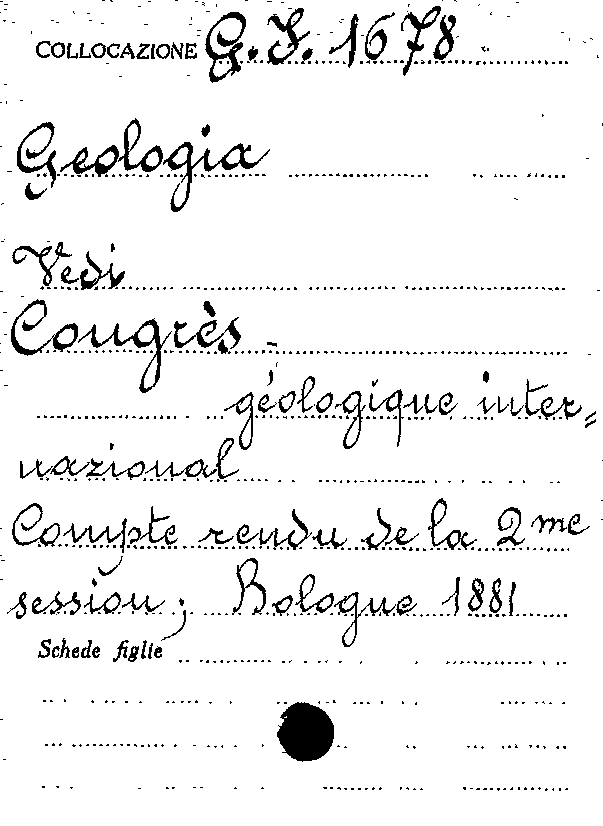 COLLOCAZIONE G. I. 1678
Geologia
Vedi
Congrès -
géologique inter=
nazional
Compte rendu de la 2me
session; Bologne 1881
Schede figlie